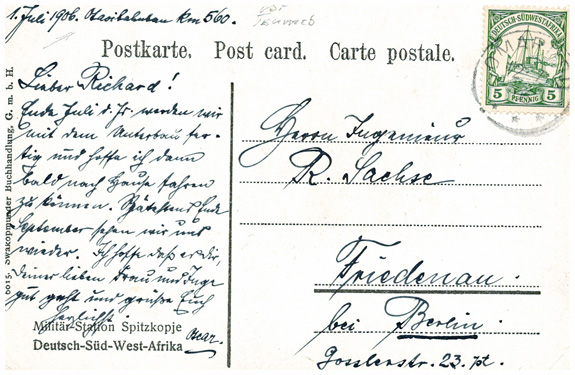 1. Juli 1906. Otavibahnbau Km 560.
Postkarte. Post card. Carte postale.
DEUTSCH-SÜDWESTAFRIKA
5 PFENNIG 5
Lieber Richard!
Ende Juli d. Js. werden wir
mit dem Unterbau fer-
tig und hoffe ich dann
bald nach Hause fahren
zu können. Spätestens Ende
September sehen wir uns
wieder. Ich hoffe daß es dir,
deiner lieben Frau und Inge
gut geht und grüße Euch
herzlichst
Oscar.
Militär-Station Spitzkopje
Deutsch-Süd-West-Afrika
Swakopmunder Buchhandlung, G. m. b. H.
Herrn Ingenieur
R. Sachse
Friedenau.
bei Berlin.
Gosslerstr. 23. pt.